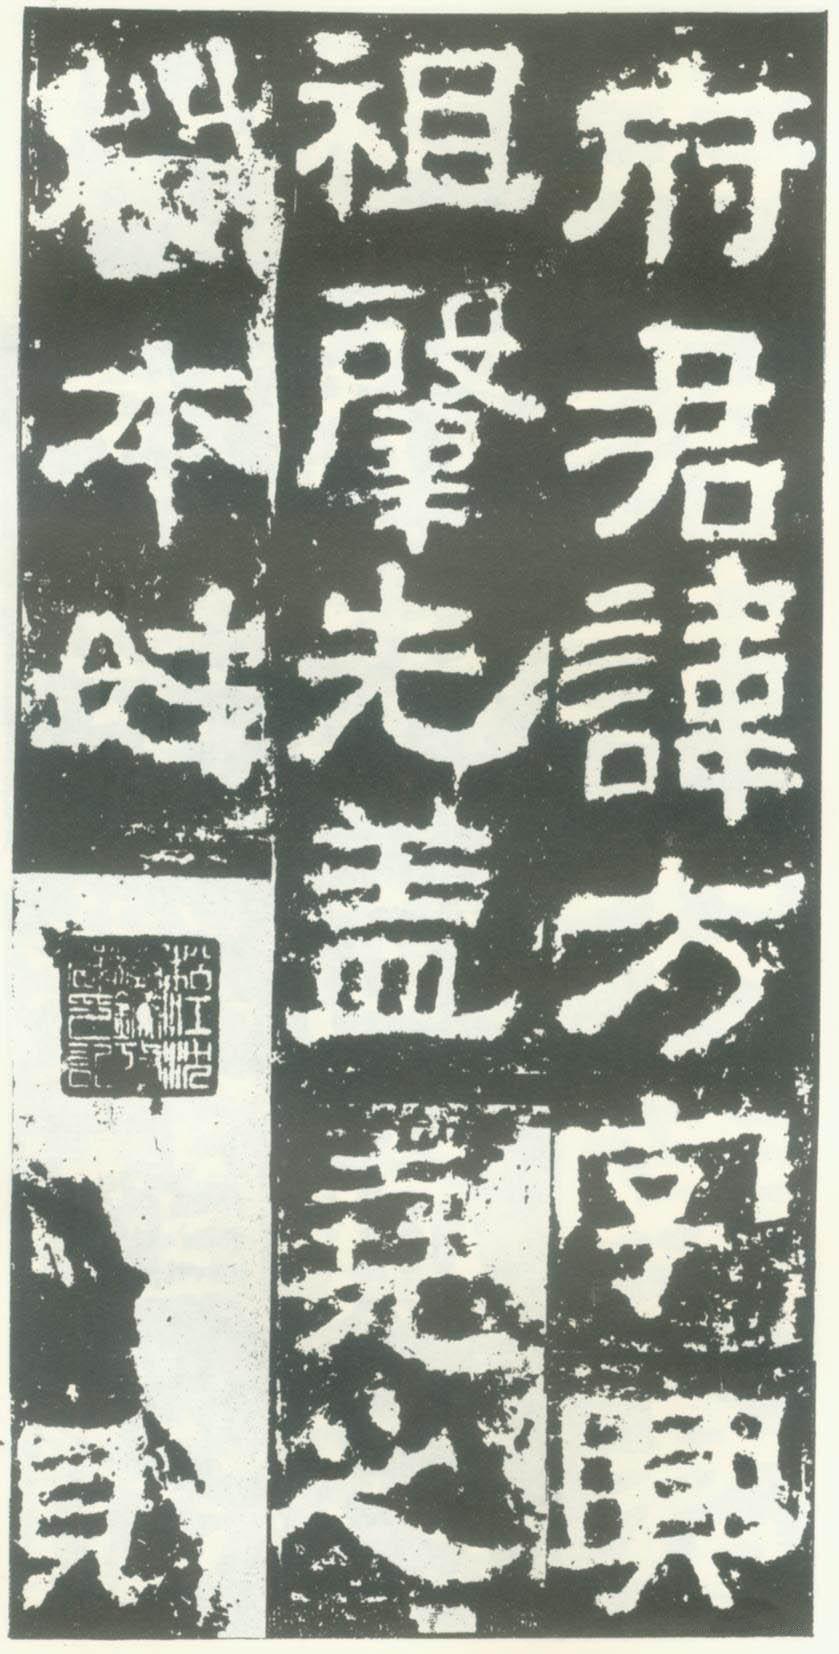 府君諱方字興
祖肇先盖堯之
苗本姓
則